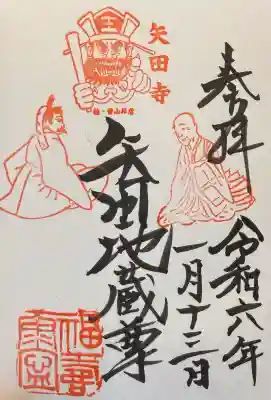 奉拝
令和六年
一月十三日
矢田寺
王
矢田地蔵尊
福壽
康寧